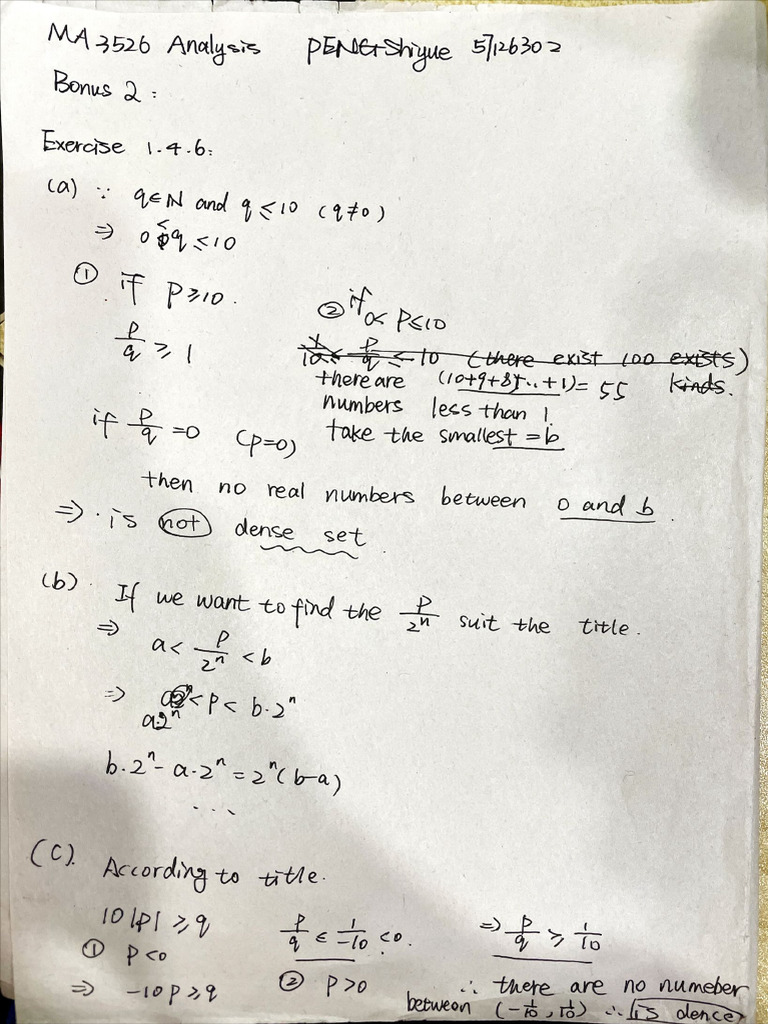 MA3526 Analysis PENG Shiyue 57126302
Bonus 2:
Exercise 1.4.6:
(a) ∵ q∈N and q≤10 (q≠0)
⇒ 0<q≤10
① if p≥10.
p/q ≥ 1
② if 0< p≤10
1/10 ≤ p/q ≤ 10 (there exist 100 exists)
there are (10+9+8+...+1)=55 kinds.
numbers less than 1.
take the smallest =b
if p/q =0 (p=0)
then no real numbers between 0 and b.
⇒ is not dense set.
(b). If we want to find the p/2ⁿ suit the title.
⇒ a< p/2ⁿ <b
⇒ a·2ⁿ <p< b·2ⁿ
b·2ⁿ-a·2ⁿ=2ⁿ(b-a)
...
(C). According to title.
10|p| ≥q
① p<0
⇒ -10p≥q
p/q ≤ 1/-10 <0.
② p>0
⇒ p/q ≥ 1/10
∴ there are no numeber
between (-1/10, 1/10) ∴ is dence